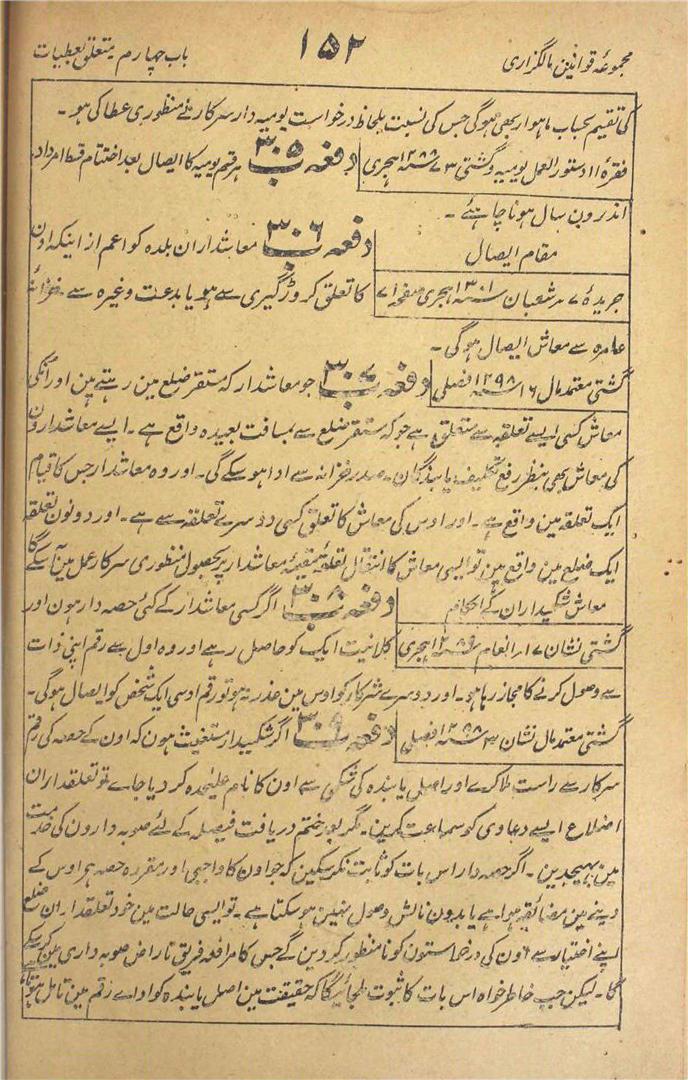 مجموعۂ قوانین مالگزاری
۱۵۲
باب چہارم متعلق تعطیات
کی تقسیم بحساب ماہوار بھی ہوگی جس کی نسبت بلحاظ درخواست یومیہ دار سرکار نے منظوری عطا کی ہو۔
فقرۂ ۱۱ دستور العمل یومیہ و گشتی ۳ ۱۲۸۸ ہجری
دفعہ ۳۰۵ ہر قسم یومیہ کا ایصال بعد اختتام قسط امرداد
اندرون سال ہونا چاہئے۔
مقام ایصال
دفعہ ۳۰۶ معاشداران بلدہ کو اعم از اینکہ اون
جریدۂ ۷ شعبان ۱۳۰۱ ہجری صفحہ ۷۱
کا تعلق کروڑ گیری سے ہو یا بدعت وغیرہ سے خزانۂ
عامرہ سے معاش ایصال ہوگی۔
گشتی معتمد مال ۱۶ ۱۲۹۸ فصلی
دفعہ ۳۰۷ جو معاشدار کہ مستقر ضلع مین رہتے ہین اور انکی
معاش کسی ایسے تعلقہ سے متعلق ہے جو کہ مستقر ضلع سے بمسافت بعیدہ واقع ہے۔ ایسے معاشدارون
کی معاش بھی بنظر رفع تکلیف یابندگان۔ صدر خزانہ سے ادا ہوسکے گی۔ اور وہ معاشدار جس کا قیام
ایک تعلقہ مین واقع ہے۔ اور اوس کی معاش کا تعلق کسی دوسرے تعلقہ سے ہے۔ اور دونون تعلقہ
ایک ضلع مین واقع ہین تو ایسی معاش کا انتقال تعلقۂ مقیمۂ معاشدار پر بحصول منظوری سرکار عمل مین آسکے گا
معاش شکمیداران کے احکام
دفعہ ۳۰۸ اگر کسی معاشدار کے کئی حصہ دار ہون اور
گشتی نشان ۱۷ انعام ۱۲۸۹ ہجری
کلانیت ایک کو حاصل رہے اور وہ اول سے رقم اپنی ذات
سے وصول کرنے کا مجاز رہا ہو۔ اور دوسرے شرکار کو اوس مین عذر نہ ہو تو رقم اوسی ایک شخص کو ایصال ہوگی۔
گشتی معتمد مال نشان ۳ ۱۲۹۸ فصلی
دفعہ ۳۰۹ اگر شکمیدار مستغیث ہون کہ اون کے حصہ کی رقم
سرکار سے راست ملا کرے اور اصل یابندہ کی شکمی سے اون کا نام علیحدہ کر دیا جاے تو تعلقداران
اضلاع ایسے دعاوی کو سماعت کرین۔ مگر بعد ختم دریافت فیصلہ کے لئے صوبہ دارون کی خدمت
مین بھیجدین۔ اگر حصہ دار اس بات کو ثابت نکر سکین کہ جو اون کا واجبی اور مقررہ حصہ ہے اوس کے
دینے مین مضائقہ ہوا ہے یا بدون نالش وصول نہین ہوسکتا ہے۔ تو ایسی حالت مین خود تعلقداران ضلع
اپنے اختیار سے اون کی درخواستون کو نامنظور کر دین گے جس کا مرافعہ فریق ناراض صوبہ داری مین کرسکے
گا۔ لیکن جب خاطر خواہ اس بات کا ثبوت ملجائیگا کہ حقیقت مین اصل یابندہ کو اداے رقم مین تامل ہوتا ہے